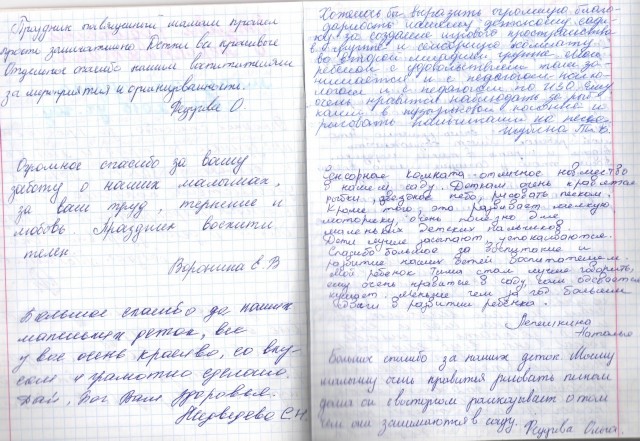 Праздник посвященный нашим
просто замечательно. Детки все
Отдельное спасибо нашим воспитателям
за мероприятия и организованность.
Федурива О.
Огромное спасибо за вашу
заботу о наших малышах,
за ваш труд, терпение и
любовь Праздник восхити
телен
Воронина Е. В
Большое спасибо за наших
маленьких деток, все
у вас очень красиво, со вку-
сом и грамотно сделано.
Дай, Бог Вам здоровья.
Медведева С.Н.
Хотелось бы выразить огромную благо-
дарность нашему детскому саду
за создание игрового пространства
в группе и сенсорную комнату
во второй младшей группе. Мой
ребенок с удовольствием там за-
нимается и с педагогом-психо-
логом и с педагогом по ИЗО. Ему
очень нравится наблюдать за рыб-
ками в пузырьковой колонне и
рисовать на песке.
Сенсорная комната отличное новшество
в нашем саду. Деткам очень нравятся
рыбки, звездное небо, рисовать песком.
Кроме того это развивает мелкую
моторику очень полезно для
маленьких детских пальчиков
Дети лучше засыпают, успокаиваются.
Спасибо большое за воспитание и
развитие наших детей воспитателям.
Мой ребенок Тима стал лучше говорить,
ему очень нравится в саду, сам одевается
кушает. Меньше чем за год большой
в развитии ребенка.
Лепешкина
Наталья
Большое спасибо за наших деток. Моему
мальчику очень нравится рисовать песком
дома он с восторгом рассказывает о том
чем они занимаются в саду. Федурива Ольга.